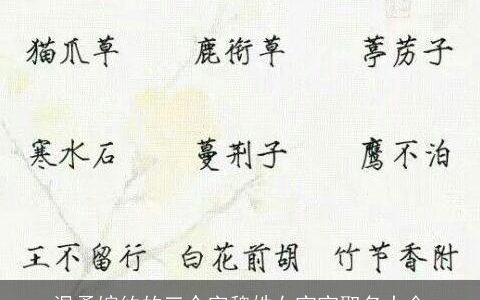 猫爪草 鹿衔草 葶苈子
寒水石 蔓荆子 鹰不泊
王不留行 白花前胡 竹节香附